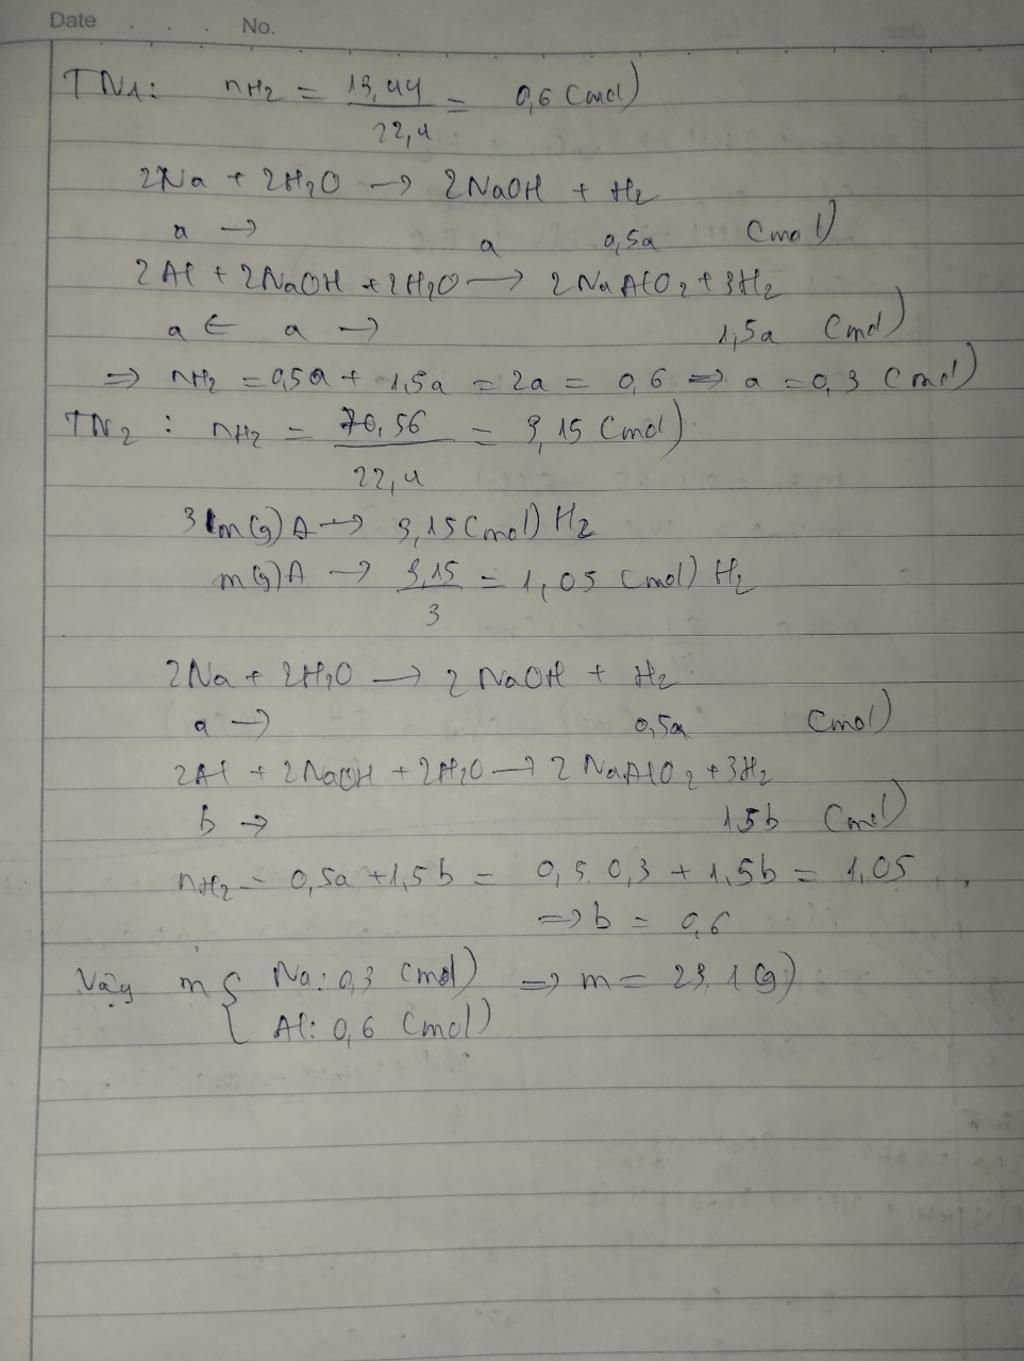 Date . . . No.
TN1: nH2 = 13,44 / 22,4 = 0,6 (mol)
2Na + 2H2O → 2NaOH + H2
a → a 0,5a (mol)
2Al + 2NaOH + 2H2O → 2NaAlO2 + 3H2
a ← a → 1,5a (mol)
⇒ nH2 = 0,5a + 1,5a = 2a = 0,6 ⇒ a = 0,3 (mol)
TN2 : nH2 = 70,56 / 22,4 = 3,15 (mol)
3m(g) A → 3,15 (mol) H2
m(g) A → 3,15 / 3 = 1,05 (mol) H2
2Na + 2H2O → 2NaOH + H2
a → 0,5a (mol)
2Al + 2NaOH + 2H2O → 2NaAlO2 + 3H2
b → 1,5b (mol)
nH2 = 0,5a + 1,5b = 0,5.0,3 + 1,5b = 1,05
⇒ b = 0,6
Vậy m { Na: 0,3 (mol) ⇒ m = 23,1 (g)
Al: 0,6 (mol)